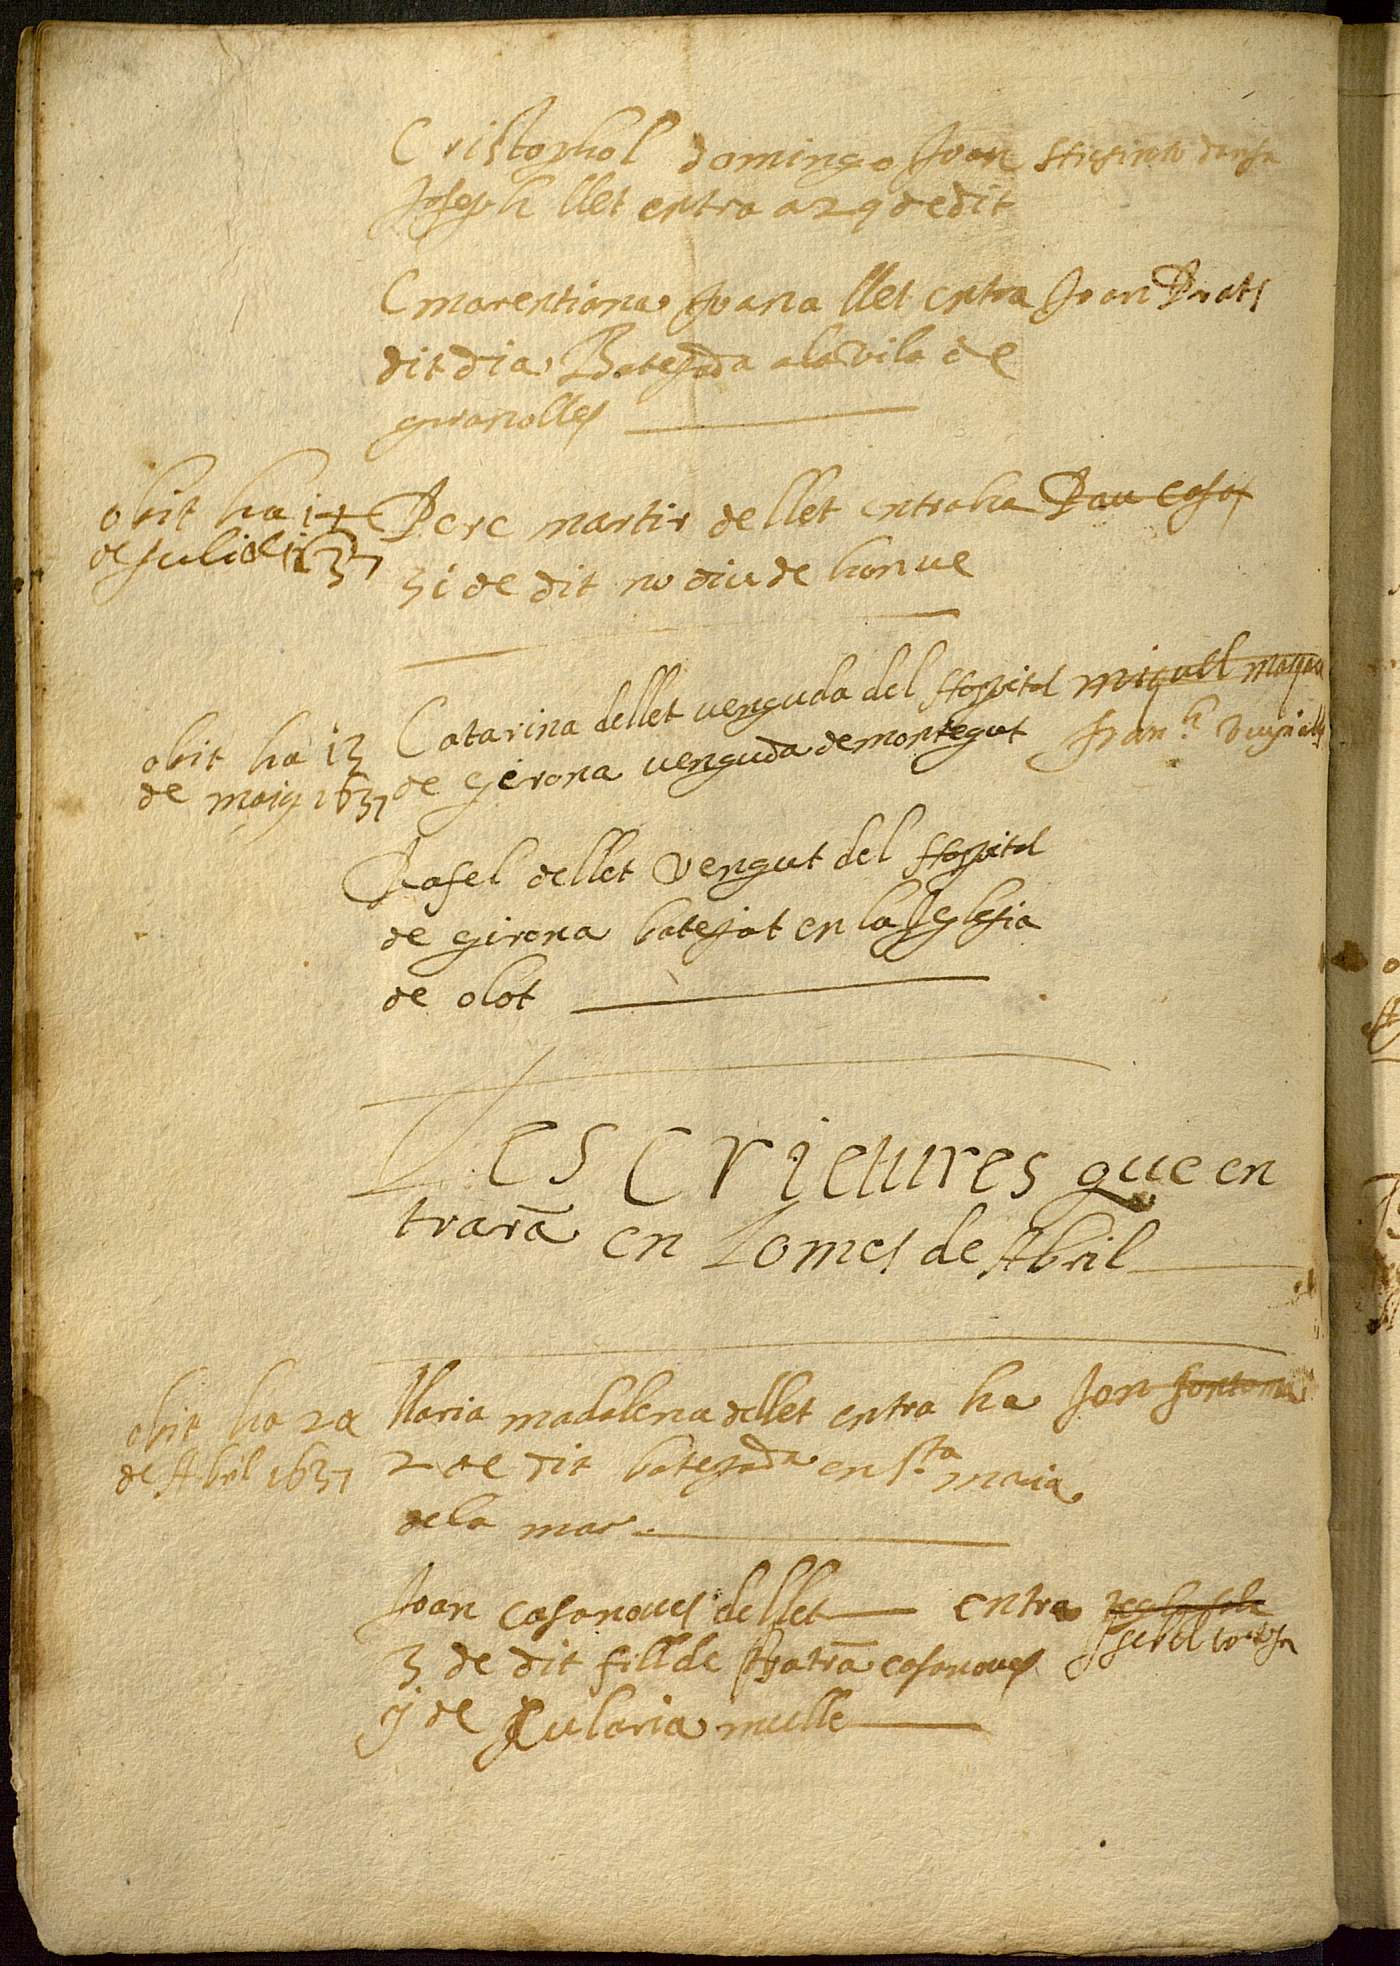 Cristophol domingo Joan
Joseph llet entra a 29 de dit
Emarentiana Juana llet entra Joan Prats
dit dia Batejada a la vila de
granolles
obit ha 14
de Juliol 1637
Pere martir de llet entra ha Pau casas
31 de dit no diu de hon ve
obit ha 13
de maig 1637
Catarina de llet venguda del Hospital miquel
de Girona venguda de montegut fran.ch
Rafel de llet vengut del Hospital
de girona batejat en la Iglesia
de olot
Les Crietures que en
trarã en Lo mes de Abril
obit ha 20
de Abril 1637
Maria madalena de llet entra ha Jon fontana
2 de dit batejada en S.ta maria
de la mar
Joan casanoves de llet entra
3 de dit fill de casanoves Isabel
y de Eularia mulle